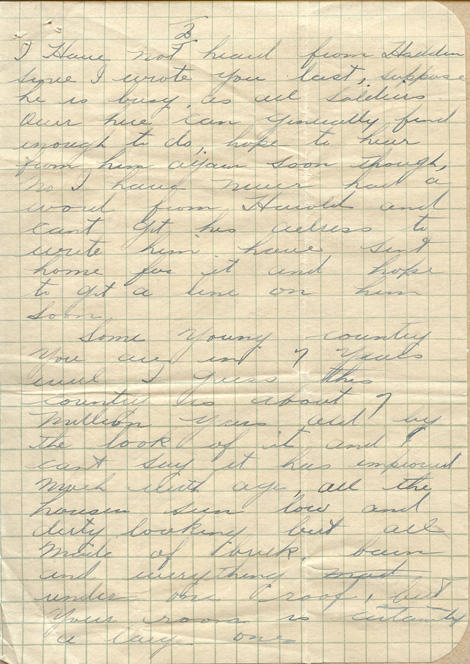 2
I Have not heard from Haddon
since I wrote you last, suppose
he is busy, as all soldiers
over here can generally find
enough to do, hope to hear
from him again soon though,
No I have never had a
word from Harold and
cant get his adress to
write him have sent
home for it and hope
to get a line on him
soon.
Some young country
you are in 7 years
well I guess this
country is about 7
million years old by
the look of it and I
cant say it has improved
much with age, all the
houses are low and
dirty looking but all
made of brick barn
and everything
under one roof, but
your room is certainly
a large one